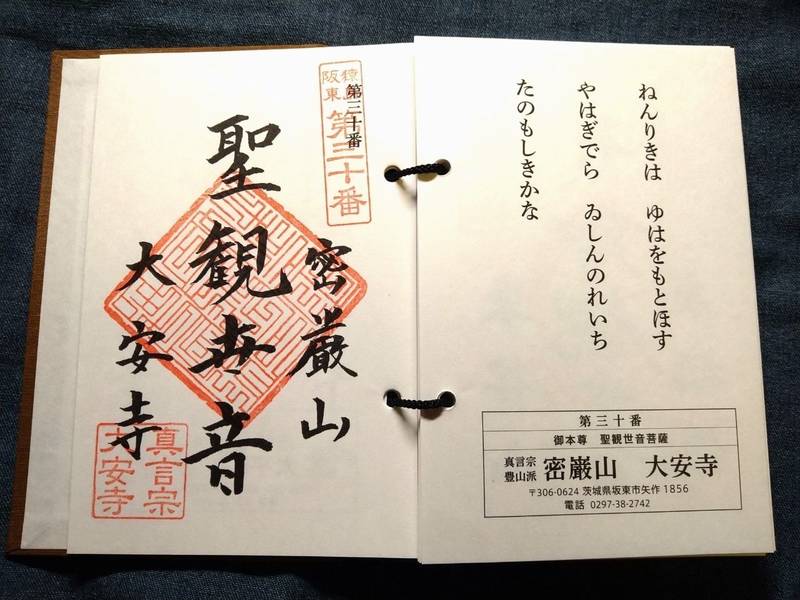 ねんりきは　ゆはをもとほす
やはぎでら　ゐしんのれいち
たのもしきかな
第三十番
御本尊　聖観世音菩薩
真言宗
豊山派
密巌山　大安寺
〒306-0624 茨城県坂東市矢作 1856
電話 0297-38-2742
阪東
第三十番
第三十番
密巌山
聖観世音
大安寺
真言宗
大安寺